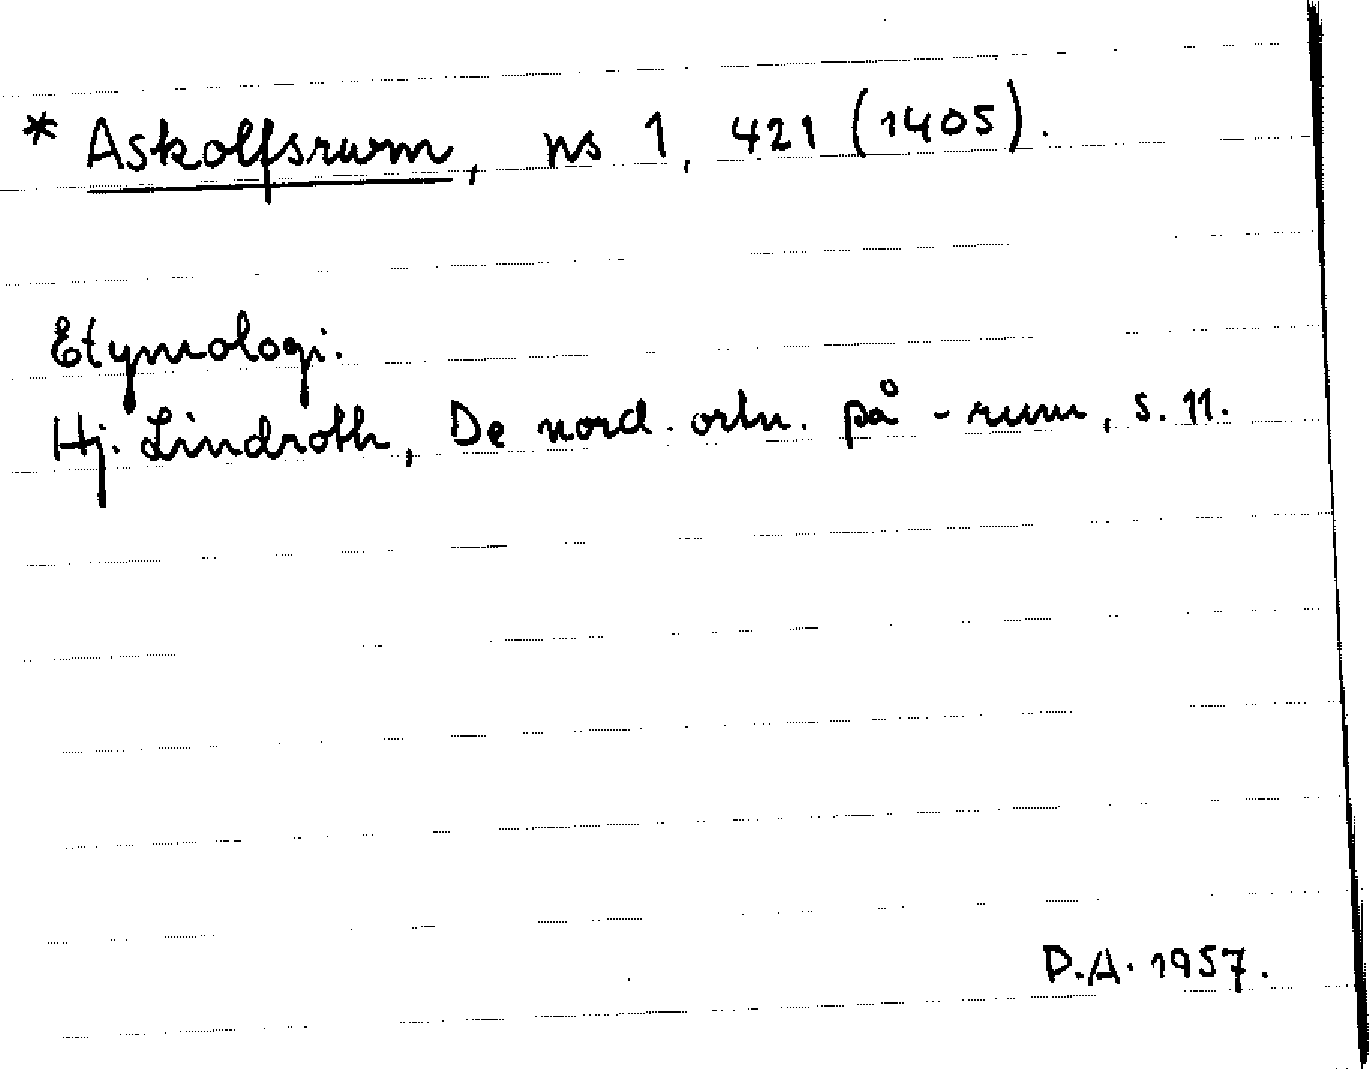 * Askolfsrum, ns 1, 421 (1405).
Etymologi.
Hj. Lindroth, De nord. ortn. på -rum, s. 11.
D.A. 1957.